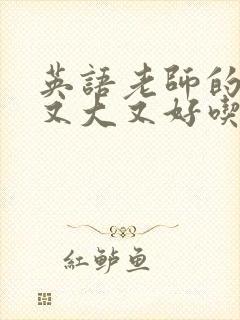 英語老師的
又大又好喫
紅鱸魚